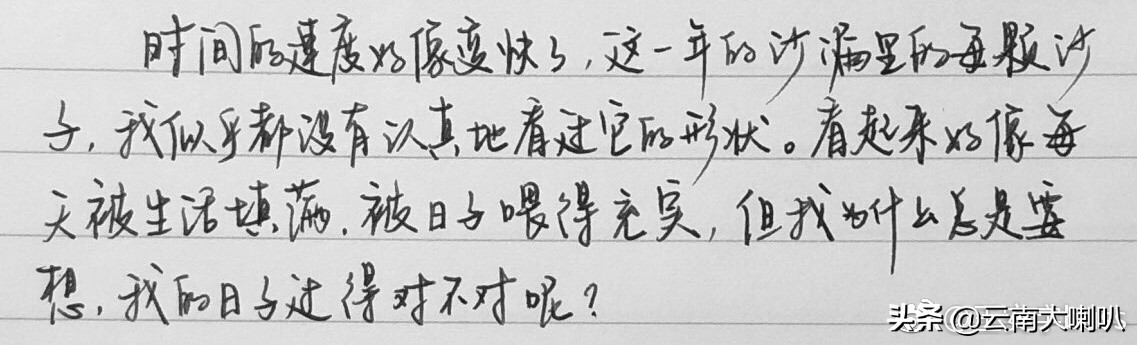 时间的速度好像变快了,这一年的沙漏里的每颗沙
子,我似乎都没有认真地看过它的形状。看起来好像每
天被生活填满,被日子喂得充实,但我为什么总是要
想,我的日子过得对不对呢?
头条@云南大喇叭